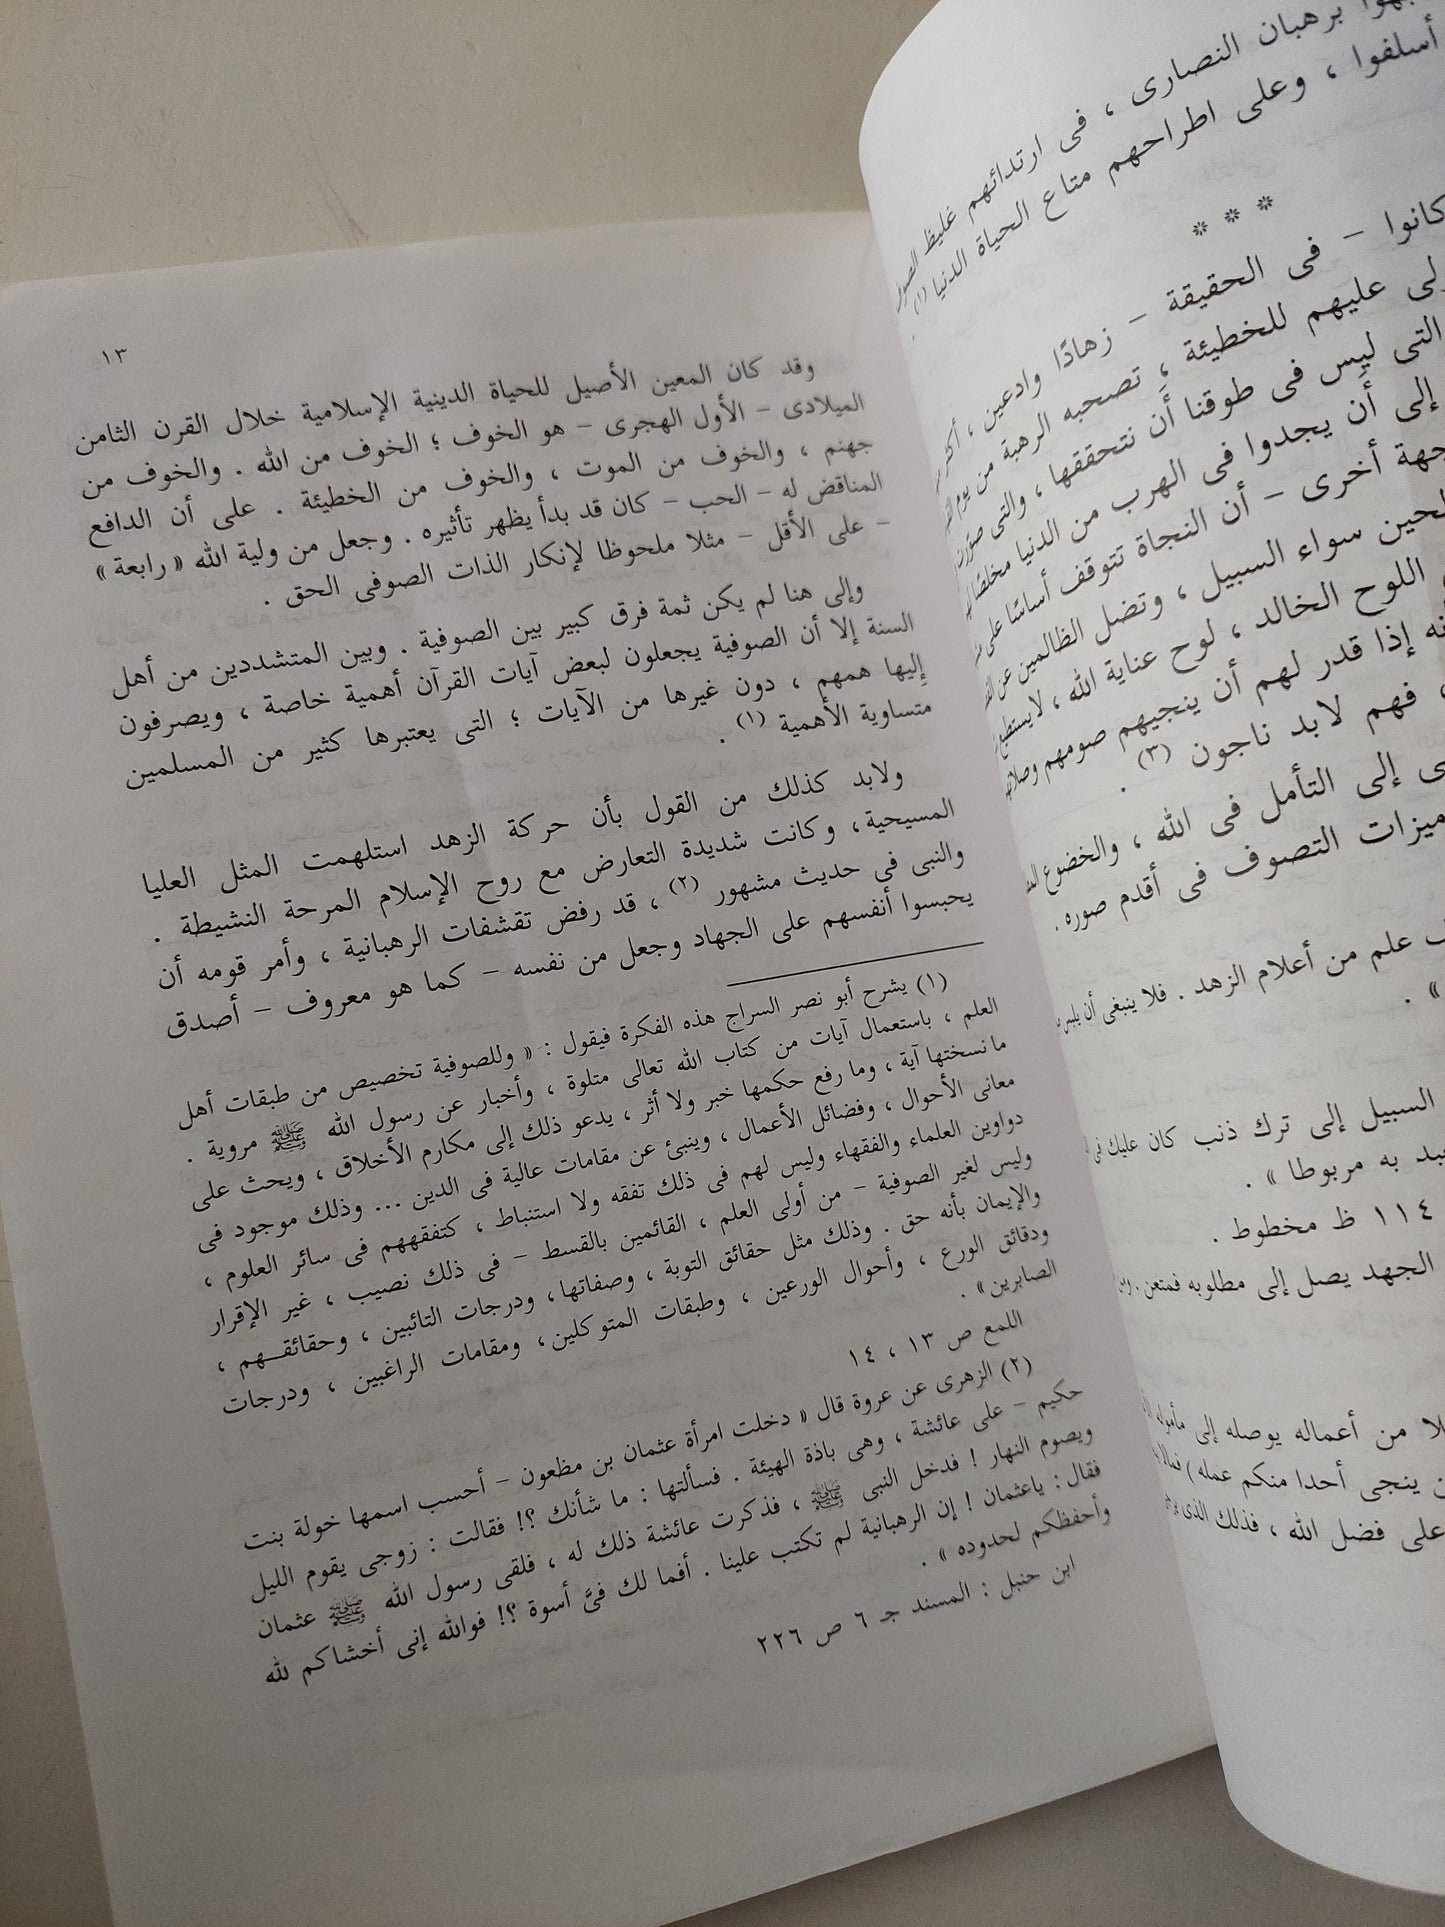 بهوا برهبان النصارى ، فى ارتدائهم غليظ الصوف
أسلفوا ، وعلى اطراحهم متاع الحياة الدنيا (١)
* * *
كانوا – فى الحقيقة – زهادًا وادعين ، أكثر
لى عليهم للخطيئة ، تصحبه الرهبة من يوم
التى ليس فى طوقنا أن نتحققها ، والتى صورت
إلى أن يجدوا فى الهرب من الدنيا مخلصًا
جهة أخرى – أن النجاة تتوقف أساسًا على
لحين سواء السبيل ، وتضل الظالمين عن
اللوح الخالد ، لوح عناية الله ، لا يستطيع
نه إذا قدر لهم أن ينجيهم صومهم وصلاتهم
، فهم لابد ناجون (٣) .
ى إلى التأمل فى الله ، والخضوع
ميزات التصوف فى أقدم صوره .
علم من أعلام الزهد . فلا ينبغى أن يلبس
» .
السبيل إلى ترك ذنب كان عليك فى
بد به مربوطا » .
١١٤ ظ مخطوط .
الجهد يصل إلى مطلوبه فمتعن .
لا من أعماله يوصله إلى مأموله
ن ينجى أحدا منكم عمله )
على فضل الله ، فذلك الذى
١٣
وقد كان المعين الأصيل للحياة الدينية الإسلامية خلال القرن الثامن
الميلادى – الأول الهجرى – هو الخوف ؛ الخوف من الله . والخوف من
جهنم ، والخوف من الموت ، والخوف من الخطيئة . على أن الدافع
المناقض له – الحب – كان قد بدأ يظهر تأثيره . وجعل من ولية الله « رابعة »
– على الأقل – مثلا ملحوظا لإنكار الذات الصوفى الحق .
وإلى هنا لم يكن ثمة فرق كبير بين الصوفية . وبين المتشددين من أهل
السنة إلا أن الصوفية يجعلون لبعض آيات القرآن أهمية خاصة ، ويصرفون
إليها هممهم ، دون غيرها من الآيات ؛ التى يعتبرها كثير من المسلمين
متساوية الأهمية (١) .
ولابد كذلك من القول بأن حركة الزهد استلهمت المثل العليا
المسيحية، وكانت شديدة التعارض مع روح الإسلام المرحة النشيطة .
والنبى فى حديث مشهور (٢) ، قد رفض تقشفات الرهبانية ، وأمر قومه أن
يحبسوا أنفسهم على الجهاد وجعل من نفسه – كما هو معروف – أصدق
(١) يشرح أبو نصر السراج هذه الفكرة فيقول : « وللصوفية تخصيص من طبقات أهل
العلم ، باستعمال آيات من كتاب الله تعالى متلوة ، وأخبار عن رسول الله ﷺ مروية .
ما نسختها آية ، وما رفع حكمها خبر ولا أثر ، يدعو ذلك إلى مكارم الأخلاق ، ويحث على
معانى الأحوال ، وفضائل الأعمال ، وينبئ عن مقامات عالية فى الدين ... وذلك موجود فى
دواوين العلماء والفقهاء وليس لهم فى ذلك تفقه ولا استنباط ، كتفقههم فى سائر العلوم ،
وليس لغير الصوفية – من أولى العلم ، القائمين بالقسط – فى ذلك نصيب ، غير الإقرار
والإيمان بأنه حق . وذلك مثل حقائق التوبة ، وصفاتها، ودرجات التائبين ، وحقائقــهم ،
ودقائق الورع ، وأحوال الورعين ، وطبقات المتوكلين، ومقامات الراغبين ، ودرجات
الصابرين» .
اللمع ص ١٣ ، ١٤
(٢) الزهرى عن عروة قال « دخلت امرأة عثمان بن مظعون – أحسب اسمها خولة بنت
حكيم – على عائشة ، وهى باذة الهيئة . فسألتها : ما شأنك ؟! فقالت : زوجى يقوم الليل
ويصوم النهار ! فدخل النبى ﷺ ، فذكرت عائشة ذلك له ، فلقى رسول الله ﷺ عثمان
فقال : ياعثمان ! إن الرهبانية لم تكتب علينا . أفما لك فىَّ أسوة ؟! فوالله إنى أخشاكم لله
وأحفظكم لحدوده » .
ابن حنبل : المسند جـ ٦ ص ٢٢٦